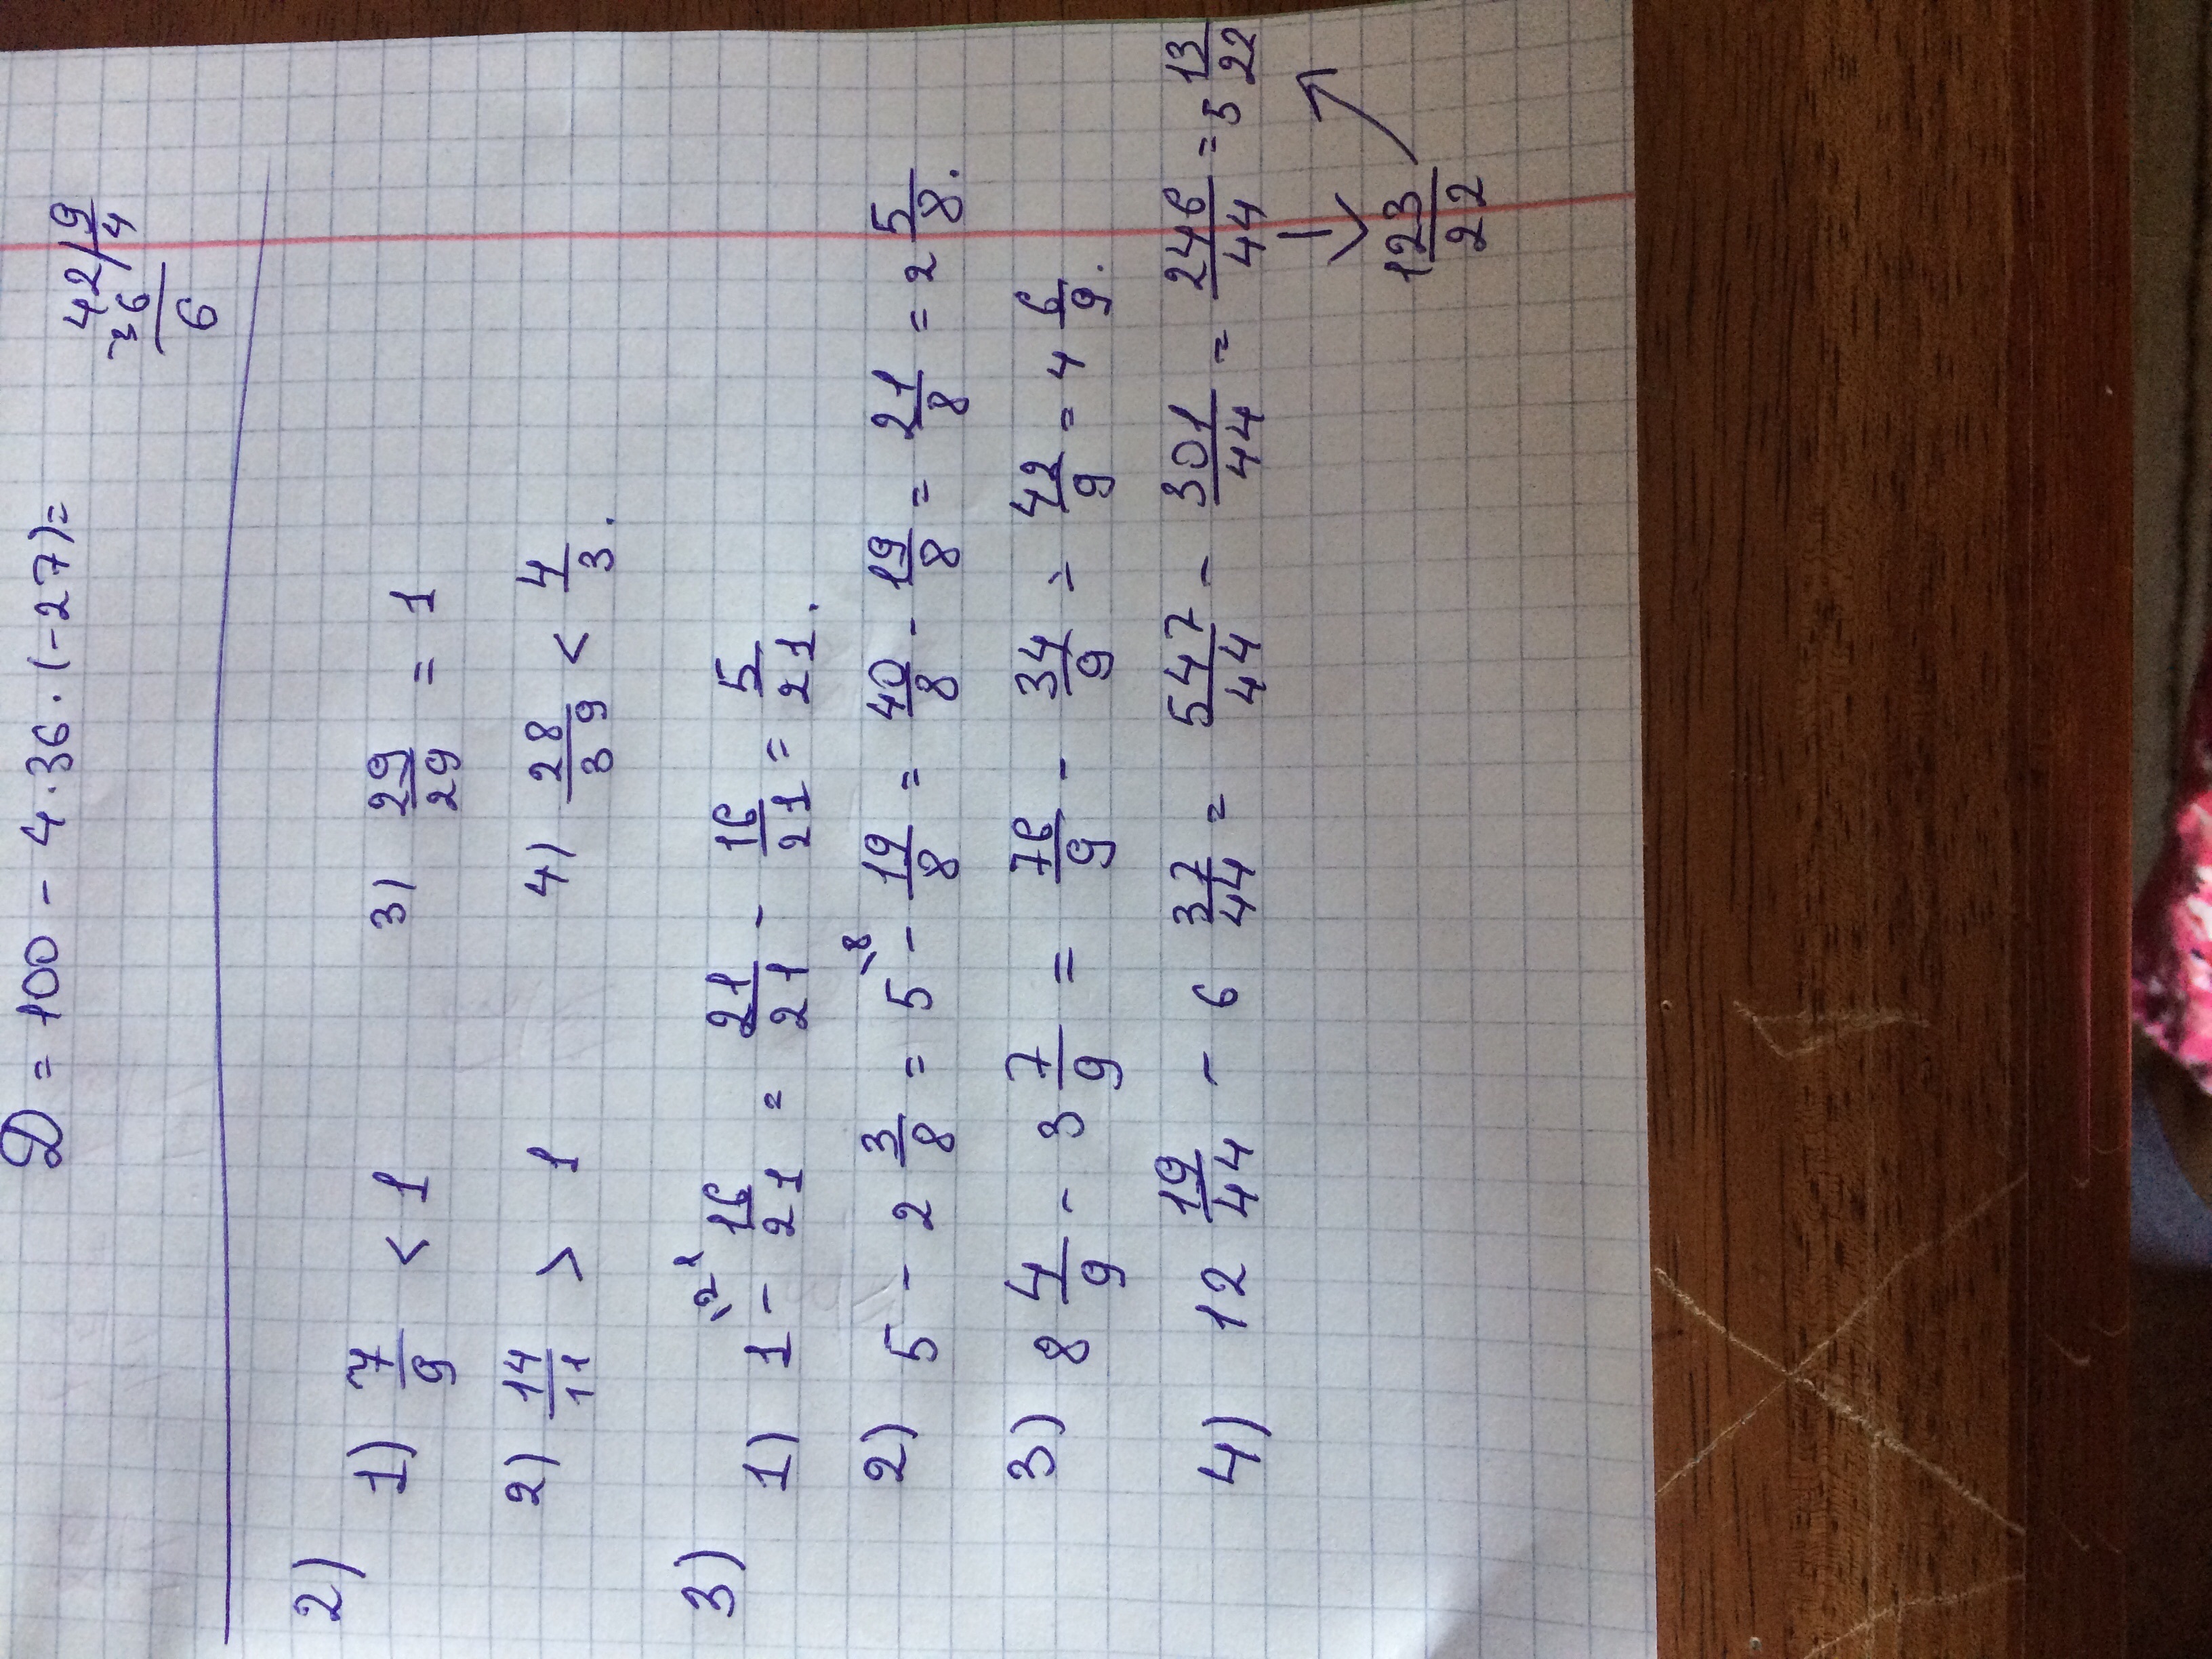 D = 100 - 4 · 36 · (-27) =
42 | 9
36 | 4
6
2)
1) 7/9 < 1
3) 29/29 = 1
2) 14/11 > 1
4) 28/39 < 4/3.
3)
1) 1\21 - 16/21 = 21/21 - 16/21 = 5/21.
2) 5 - 2 3/8 = 5\8 - 19/8 = 40/8 - 19/8 = 21/8 = 2 5/8.
3) 8 4/9 - 3 7/9 = 76/9 - 34/9 = 42/9 = 4 6/9.
4) 12 19/44 - 6 37/44 = 547/44 - 301/44 = 246/44 = 5 13/22
123/22